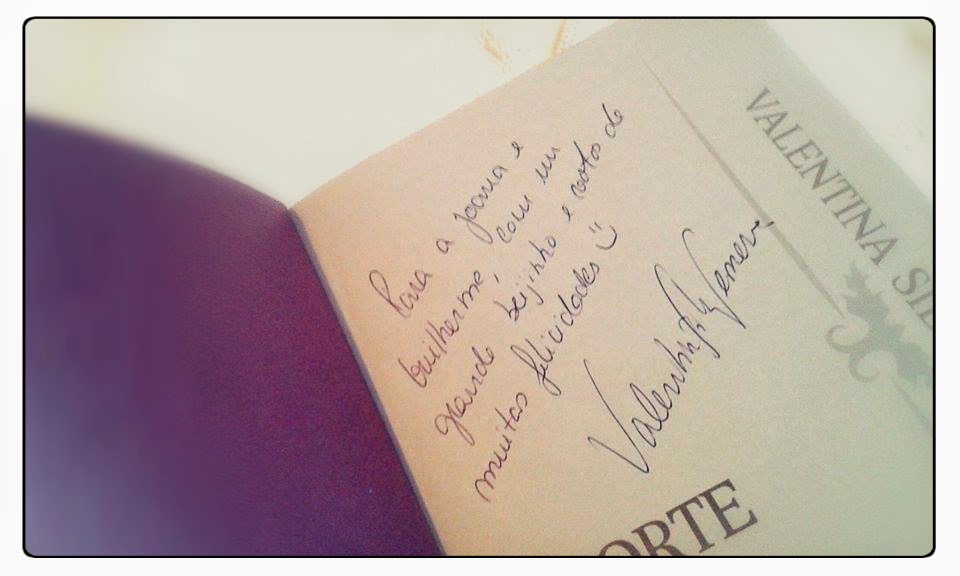 Para a Joana e
Guilherme, com um
grande beijinho e votos de
muitas felicidades :)
Valentina
VALENTINA SIL
ORTE